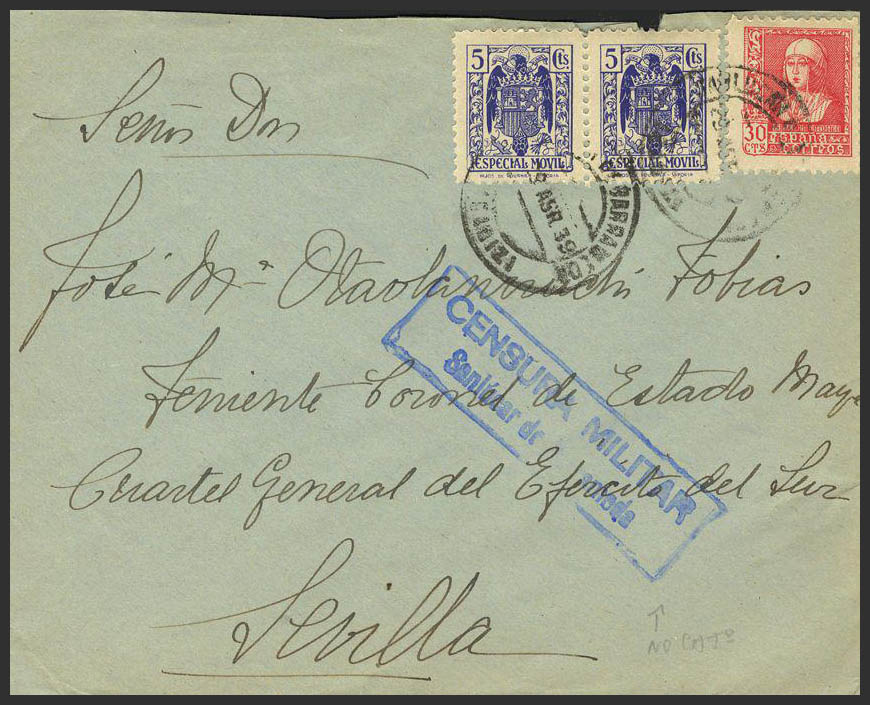 5 Cts. 5 Cts.
ESPECIAL MOVIL ESPECIAL MOVIL
30
CTS
ESPAÑA
CORREOS
ABR. 39
Señor Don
José Mª Otaolaurruchi Tobias
Teniente Coronel de Estado Mayor
Cuartel General del Ejército del Sur
Sevilla
CENSURA MILITAR
Sanlúcar de
NO CATº